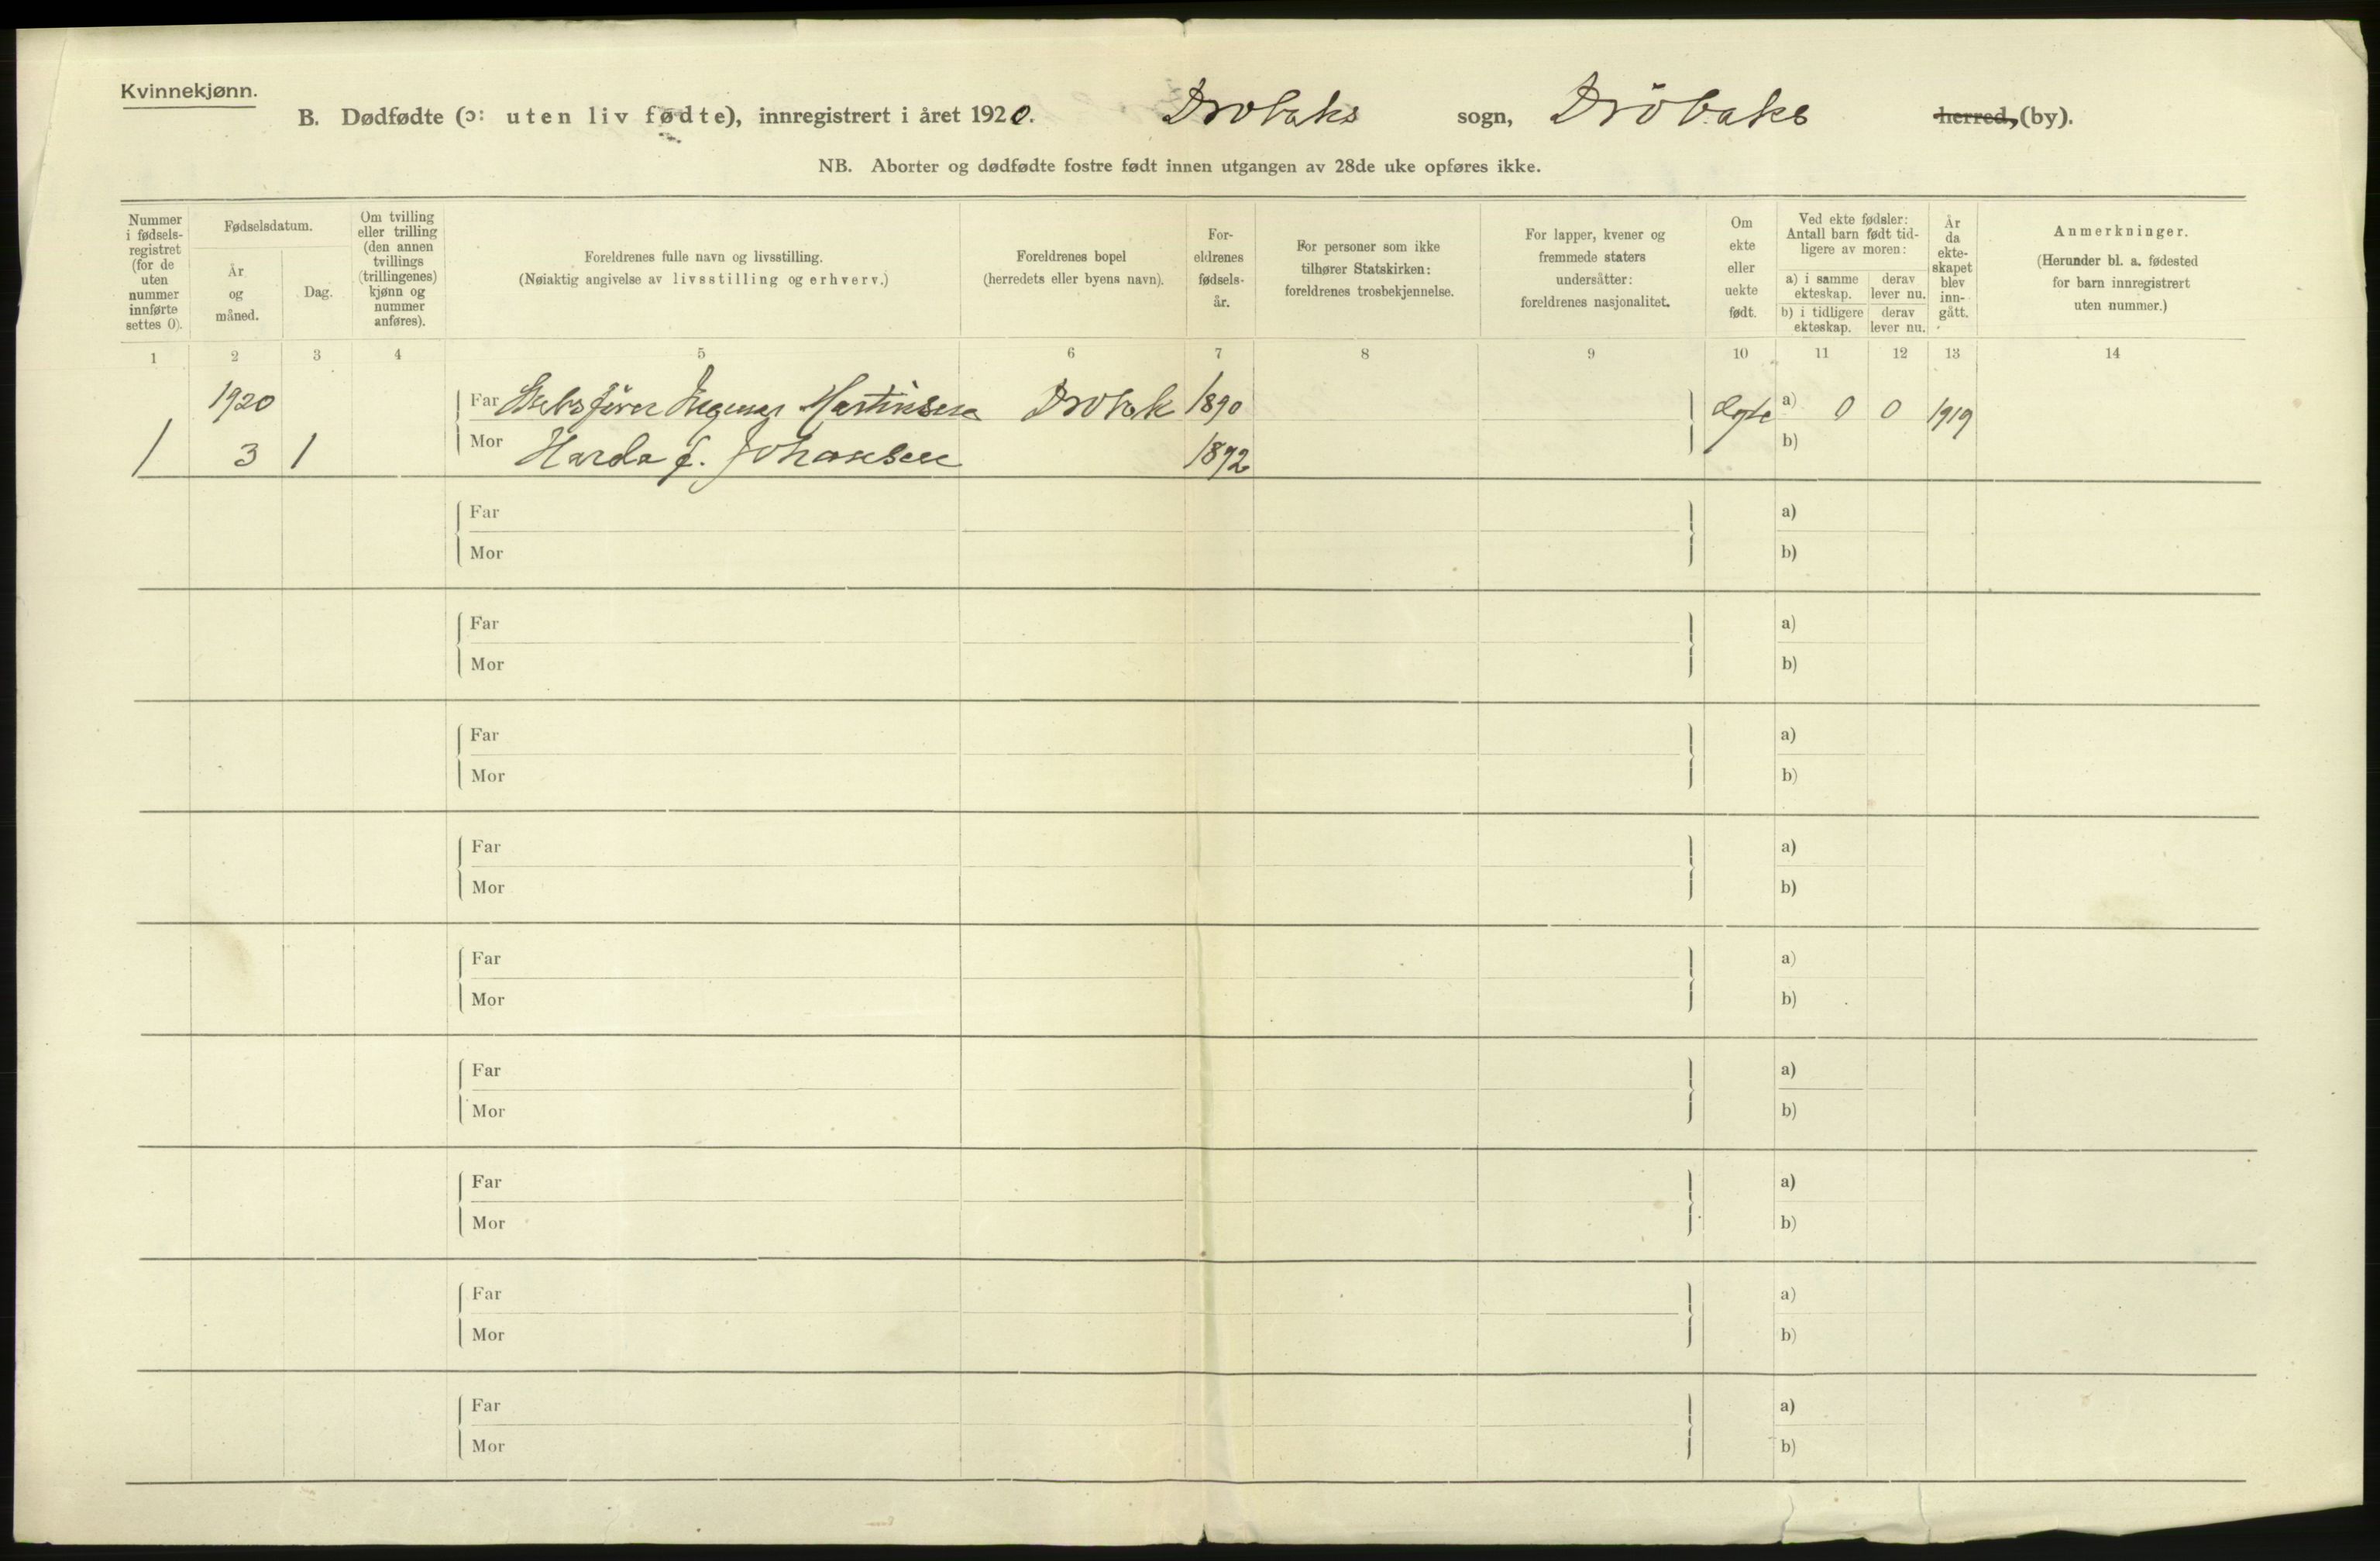 Kvinnekjønn.
B. Dødfødte (ɔ: uten liv fødte), innregistrert i året 1920. Drobaks sogn, Dröbaks herred, (by).
NB. Aborter og dødfødte fostre født innen utgangen av 28de uke opføres ikke.
Nummer i fødsels-registret (for de uten nummer innførte settes 0).
Fødselsdatum.
År og måned.
Dag.
Om tvilling eller trilling (den annen tvillings (trillingenes) kjønn og nummer anføres).
Foreldrenes fulle navn og livsstilling.
(Nøiaktig angivelse av livsstilling og erhverv.)
Foreldrenes bopel
(herredets eller byens navn).
For-eldrenes fødsels-år.
For personer som ikke tilhører Statskirken: foreldrenes trosbekjennelse.
For lapper, kvener og fremmede staters undersåtter: foreldrenes nasjonalitet.
Om ekte eller uekte født.
Ved ekte fødsler: Antall barn født tid-ligere av moren:
a) i samme ekteskap.
derav lever nu.
b) i tidligere ekteskap.
derav lever nu.
År da ekte-skapet blev inn-gått.
Anmerkninger.
(Herunder bl. a. fødested for barn innregistrert uten nummer.)
1 2 3 4 5 6 7 8 9 10 11 12 13 14
1920 Far Martinsen Drobak 1890 ægte a) 0 0 1919
1 3 1 Mor Harda f. Johansen 1892 b)
Far a)
Mor b)
Far a)
Mor b)
Far a)
Mor b)
Far a)
Mor b)
Far a)
Mor b)
Far a)
Mor b)
Far a)
Mor b)
Far a)
Mor b)
Far a)
Mor b)